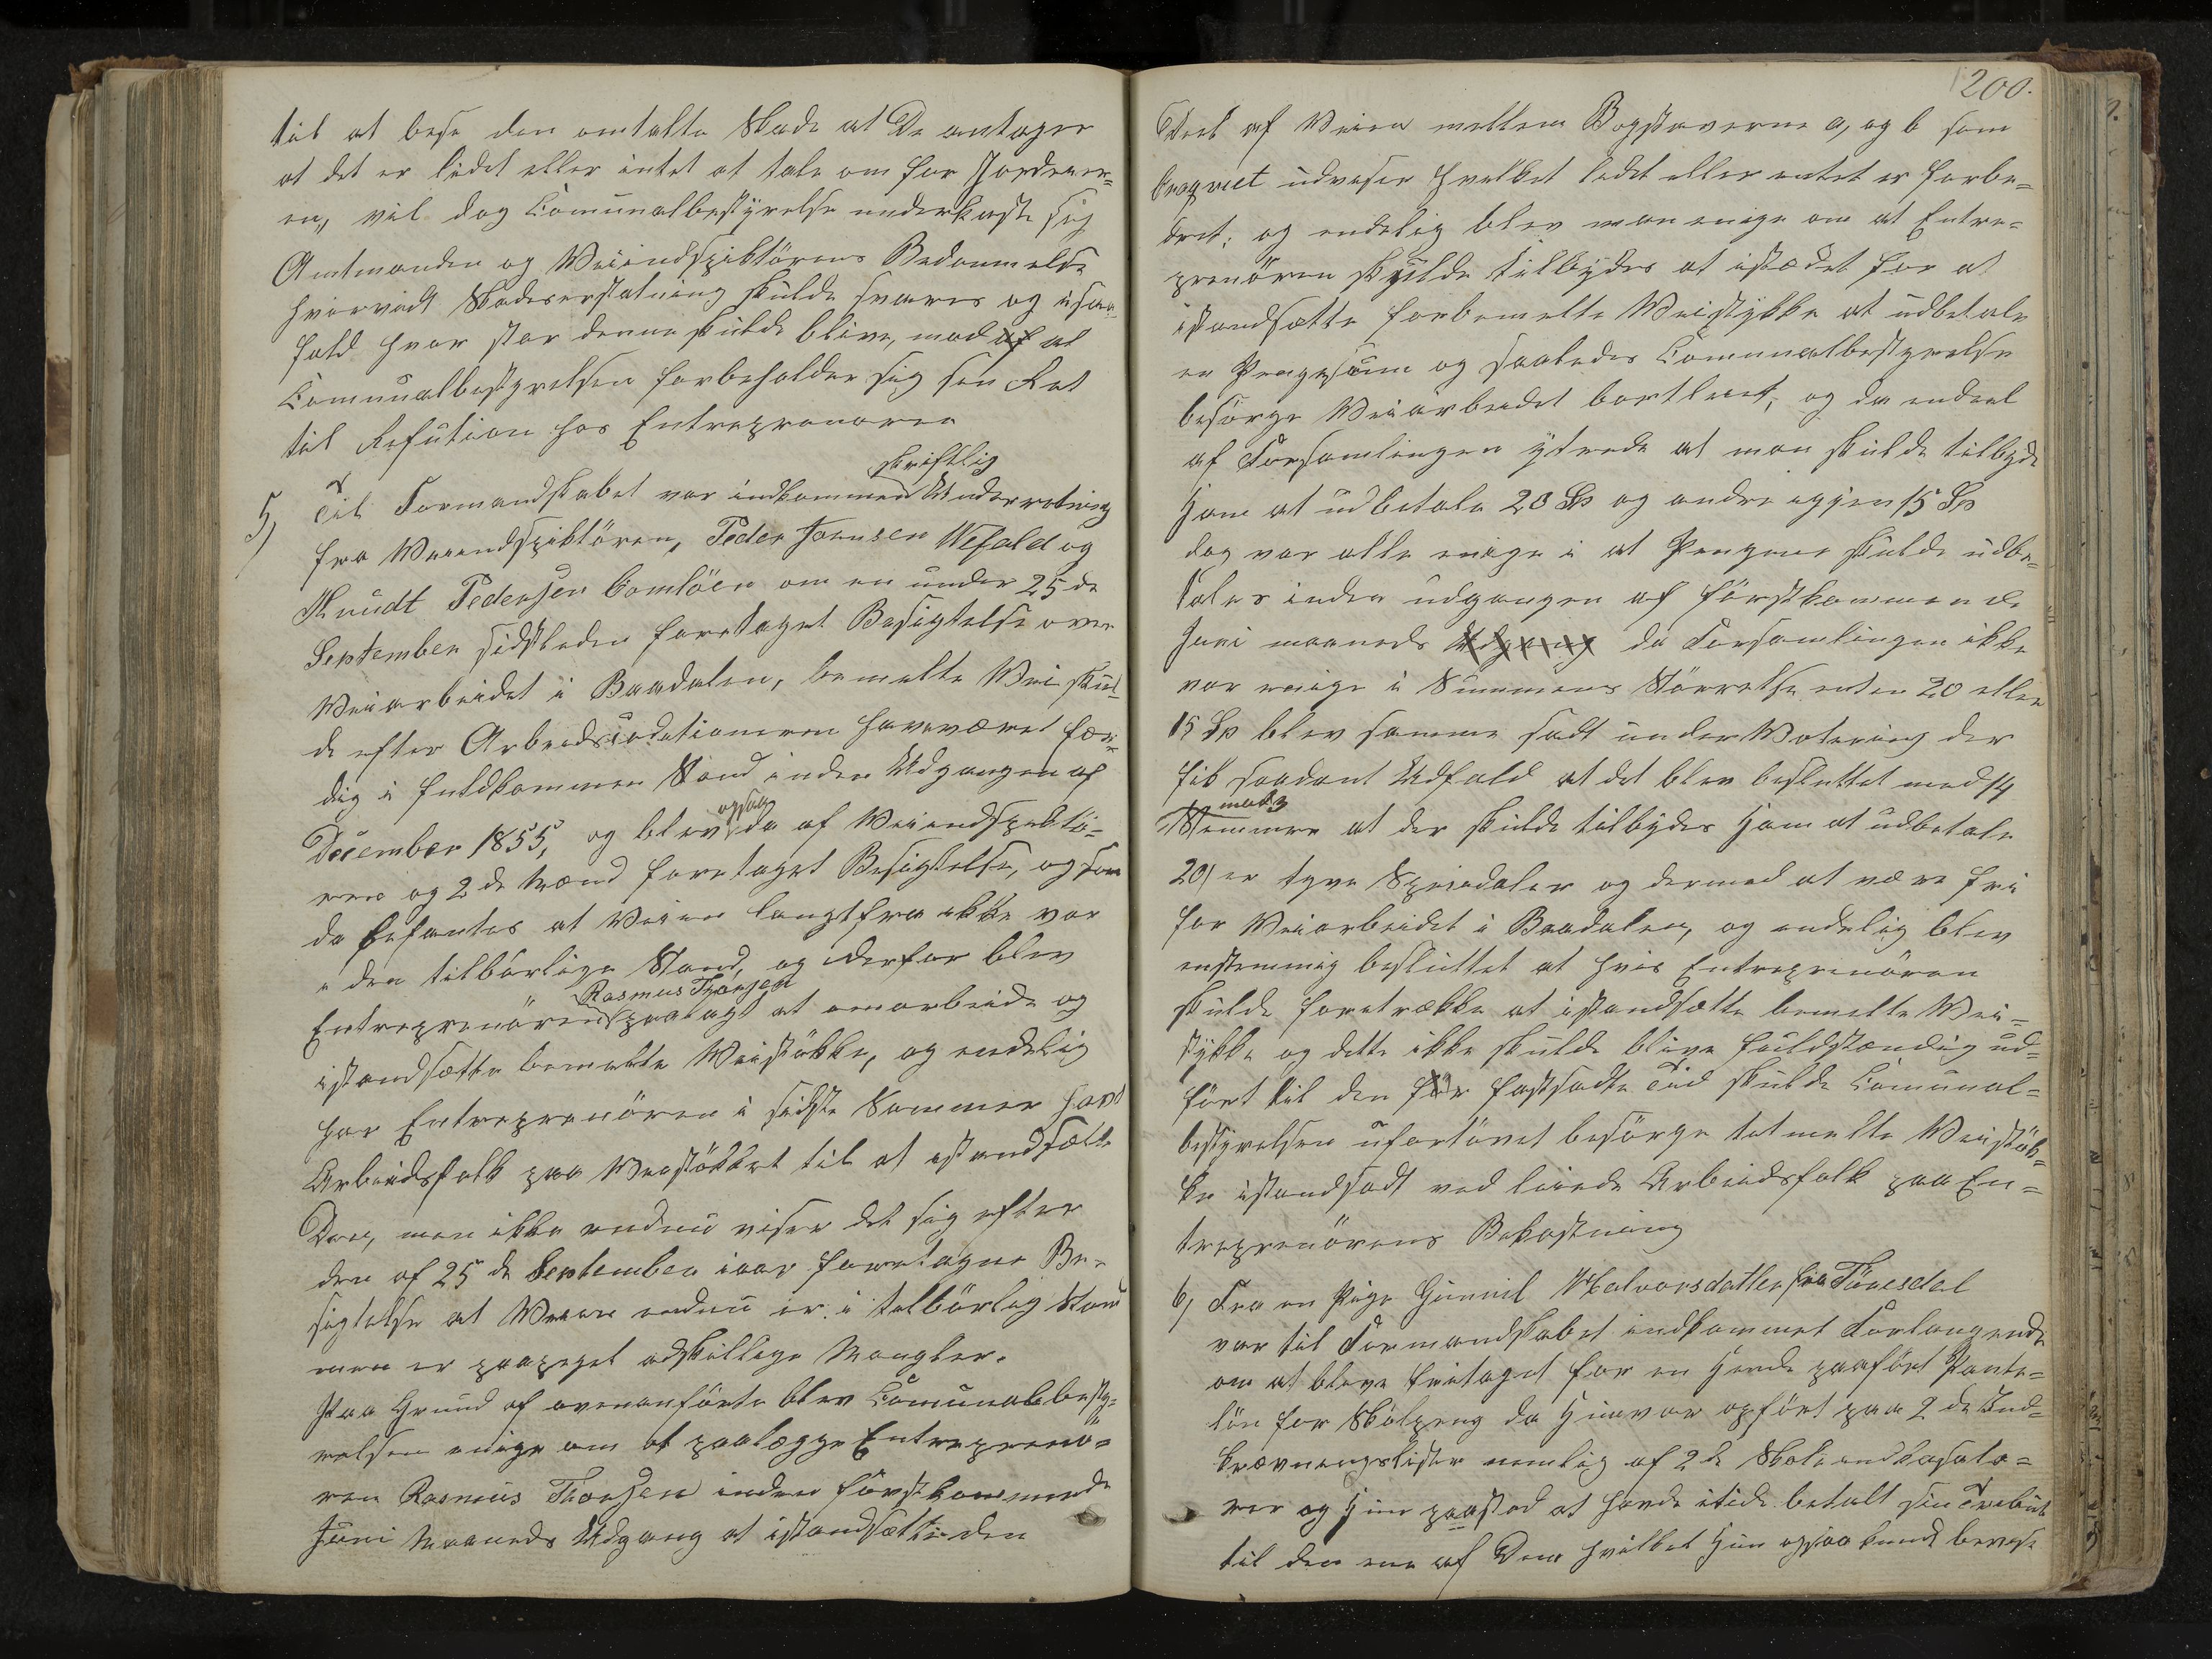 til at bese den omtalte Skade at De antager
at det er lidet eller intet at tale om for Jordeier=
en, vil dog Comunalbestÿrelse underkaste sig
Amtmanden og Veiindspiktörens Bedømmelse
hvorvidt Skadeserstatning skulde svares og isaa
fald hvor stor denne skulde blive, mod af at
Comunalbestyrelsen forbeholder sig sin Ret
til Refution hos Entreprenøren
5) Til Formandskabet var indkommen skriftlig Underretning
fra Veiindspiktören, Peder Jensen Wefald og
Knudt Pedersen Tomtöen om en under 25de
September sidstleden foretaget Besigtelse over
Veiarbeidet i Baadalen, bemelte Vei skul
de efter Arbeids have været fær=
dig i fuldkommen Stand inden Udgangen af
December 1855, og blev ogsaa da af Veiindspektö=
ren og 2de Mænd foretaget Besigtelse, og som
da befantes at Veien langtfra ikke var
i den tilbørlige Stand, og derfor blev
Entreprenören Rasmus Thorsen paalagt at omarbeide og
istandsætte bemelte Veistökke, og endelig
har Entreprenören i sidste Sommer havt
Arbeidsfolk paa Veistökket til at istandsætte
Den, men ikke endnu viser det sig efter
den af 25de September iaar foretagne Be=
sigtelse at Veien endnu er i tilbörlig Stand
men er paapeget adskillige Mangler.
Paa Grund af ovenanförte blev Comunalbesty=
relsen enige om at paalægge Entreprenö=
ren Rasmus Thorsen inden förstkommende
Juni Maaneds Udgang at istandsætte den
200.
Deel af Veien mellem Bogstaverne a, og b som
udviser hvilket lidet eller intet er forbe=
dret; og endelig blev man enige om at Entre=
prenören skulde tilbydes at istædet for at
istandsætte forbemelte Veistykke at udbetale
en Pengesum og saaledes Comunalbestyrelse
besörge Veiarbeidet bortleiet, og da endeel
af Forsamlingen yttrede at man skulde tilbyde
Ham at udbetale 20 Sp og andre igjen 15 Sp
dog var alle enige i at Pengene skulde udbe=
tales inden udgangen af förstkommende
Juni maaneds Udgang da Forsamlingen ikke
var enige i Summens Störrelse enten 20 eller
15 Sp blev samme sadt under Votering der
fik saadant Udfald at det blev besluttet med 14
Stemmer mod 3 at der skulde tilbydes Ham at udbetale
20) er tyve Speciedaler og dermed at være fri
for Veiarbeidet i Baadalen, og endelig blev
enstemmig besluttet at hvis Entreprenören
skulde foretrække at istandsætte bemelte Vei=
stykke og dette ikke skulde blive fuldstændig ud=
fört til den för fastsadte Tid skulde Comunal=
bestyrelsen ufortövet besörge bemelte Veistök=
ke istandsadt ved leiede Arbeidsfolk paa En=
treprenörens Bekostning
6) Fra en Pige Gunnil Halvorsdatter fra Tönesdal
var til Formandskabet indkommet Forlangende
om at blive fritaget for en Hende paafört Pante=
lön for Skolpeng da Hun var opfört paa 2de Ind=
krævningslister nemlig af 2de Skoleindkasale=
rer og Hun paastod at havde itide betalt sin Tribut
til den ene af Dem hvilket Hun ogsaa kunde bevise